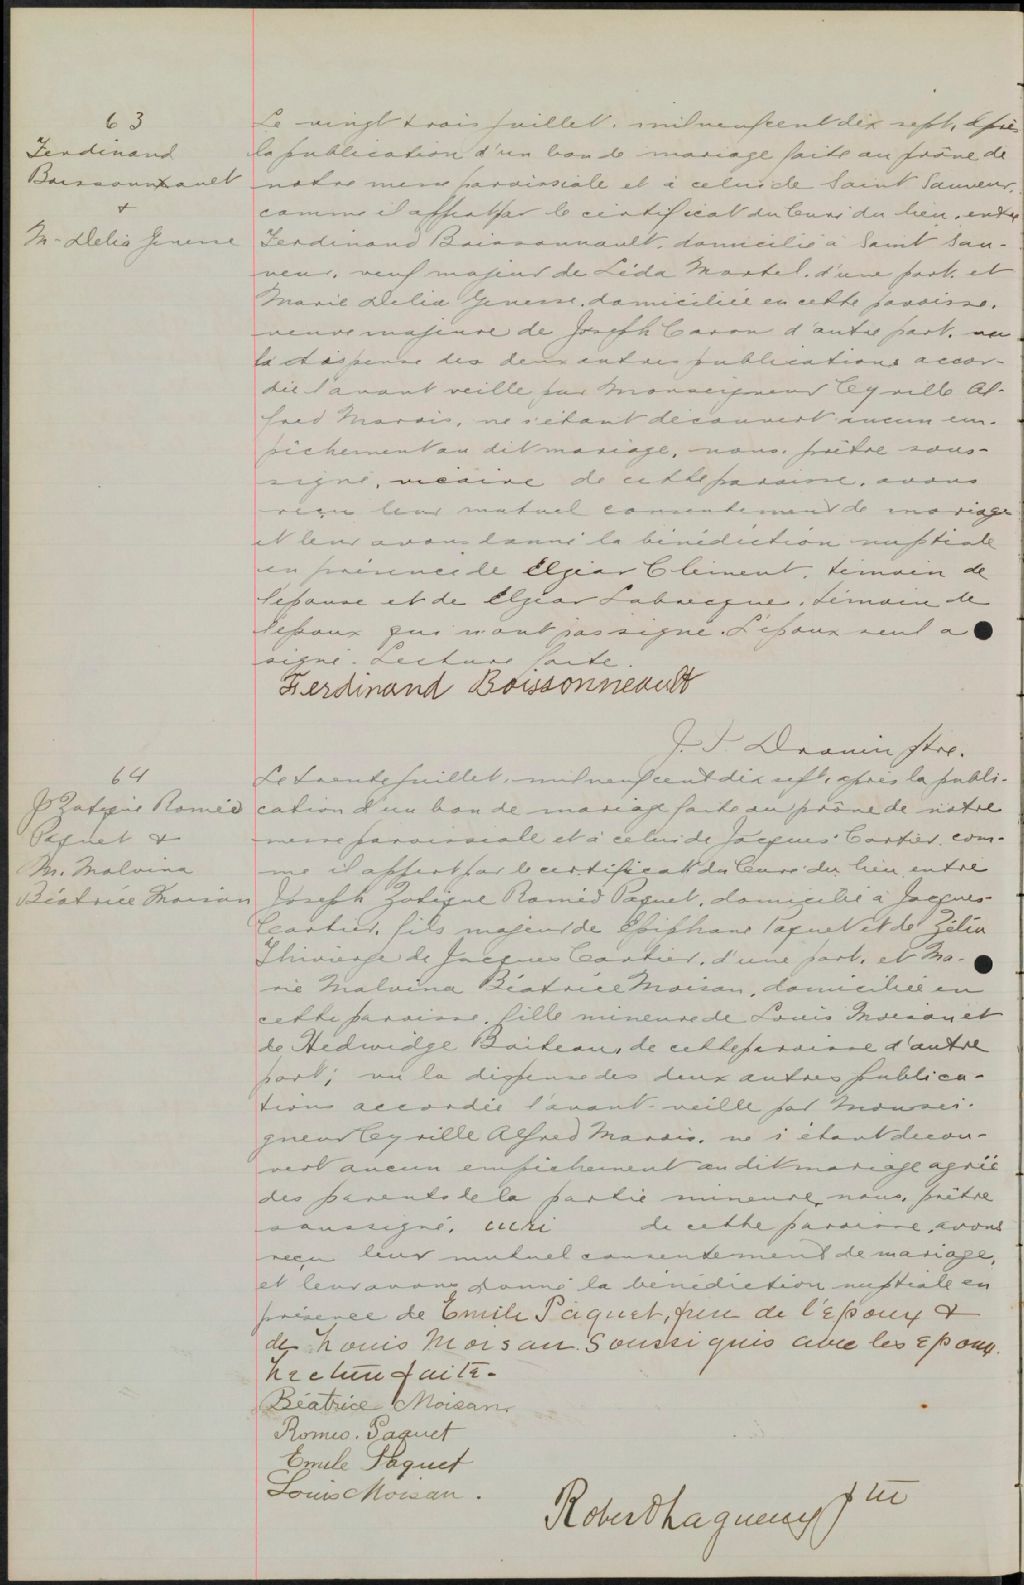 63
Ferdinand
Boissonnault
+
M- Delia Genesse
Le vingt trois juillet, mil neuf cent dix sept, après
la publication d'un ban de mariage faite au prône de
notre messe paroissiale et à celui de Saint Sauveur,
comme il appert par le certificat du Curé du lieu, entre
Ferdinand Boissonnault, domicilié à Saint Sau-
veur, veuf majeur de Léda Martel, d'une part, et
Marie Delia Genesse, domiciliée en cette paroisse,
veuve majeure de Joseph Caron d'autre part, vu
la dispense des deux autres publications accor-
dée l'avant veille par Monseigneur Cyrille Al-
fred Marois, ne s'étant découvert aucun em-
pêchement au dit mariage, nous, prêtre sous-
signé, vicaire de cette paroisse, avons
reçu leur mutuel consentement de mariage
et leur avons donné la bénédiction nuptiale
en présence de Elzéar Clément, témoin de
l'épouse et de Elzéar Labrecque, témoin de
l'époux qui n'ont pas signé. L'époux seul a
signé. Lecture faite.
Ferdinand Boissonneault
J. Drouin ptre.
64
J Zotique Roméo
Paquet &
M. Malvina
Béatrice Moisan
Le trente juillet, mil neuf cent dix sept, après la publi-
cation d'un ban de mariage faite au prône de notre
messe paroissiale et à celui de Jacques Cartier, com-
me il appert par le certificat du Curé du lieu, entre
Joseph Zotique Roméo Paquet, domicilié à Jacques-
Cartier, fils majeur de Epiphane Paquet et de Zélia
Thivierge de Jacques Cartier, d'une part, et Ma-
rie Malvina Béatrice Moisan, domiciliée en
cette paroisse, fille mineure de Louis Moisan et
de Hedwidge Boiteau, de cette paroisse d'autre
part; vu la dispense des deux autres publica-
tions accordée l'avant-veille par Monsei-
gneur Cyrille Alfred Marois, ne s'étant décou-
vert aucun empêchement au dit mariage agréé
des parents de la partie mineure, nous, prêtre
soussigné, curé de cette paroisse, avons
reçu leur mutuel consentement de mariage,
et leur avons donné la bénédiction nuptiale en
présence de Emile Paquet, père de l'époux &
de Louis Moisan soussignés avec les époux.
Lecture faite-
Béatrice Moisan
Romeo. Paquet
Emile Paquet
Louis Moisan.
Robert Lagueux ptre